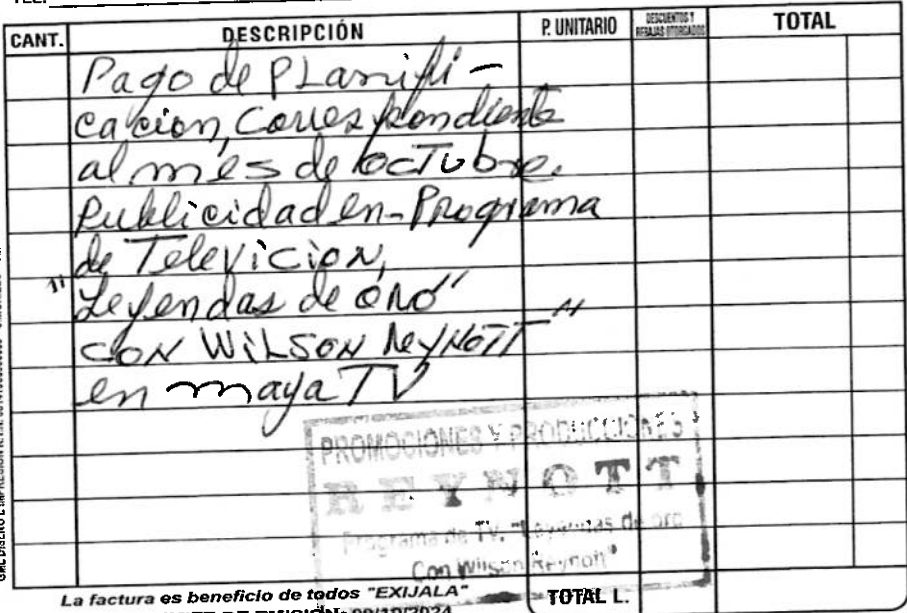 CANT. DESCRIPCIÓN P. UNITARIO DESCUENTOS Y REBAJAS OTORGADOS TOTAL
Pago de PLanifi-
cacion, Correspondiente
al mes de ocTubre.
Publicidad en-Programa
de Televicion,
"Leyendas de oro"
CON WiLSON ReyNoTT"
en maya TV
PROMOCIONES Y PRODUCCIONES
REYNOTT
Programa de TV. "Leyendas de oro
Con Wilson Reynott"
La factura es beneficio de todos "EXIJALA"
TOTAL L.